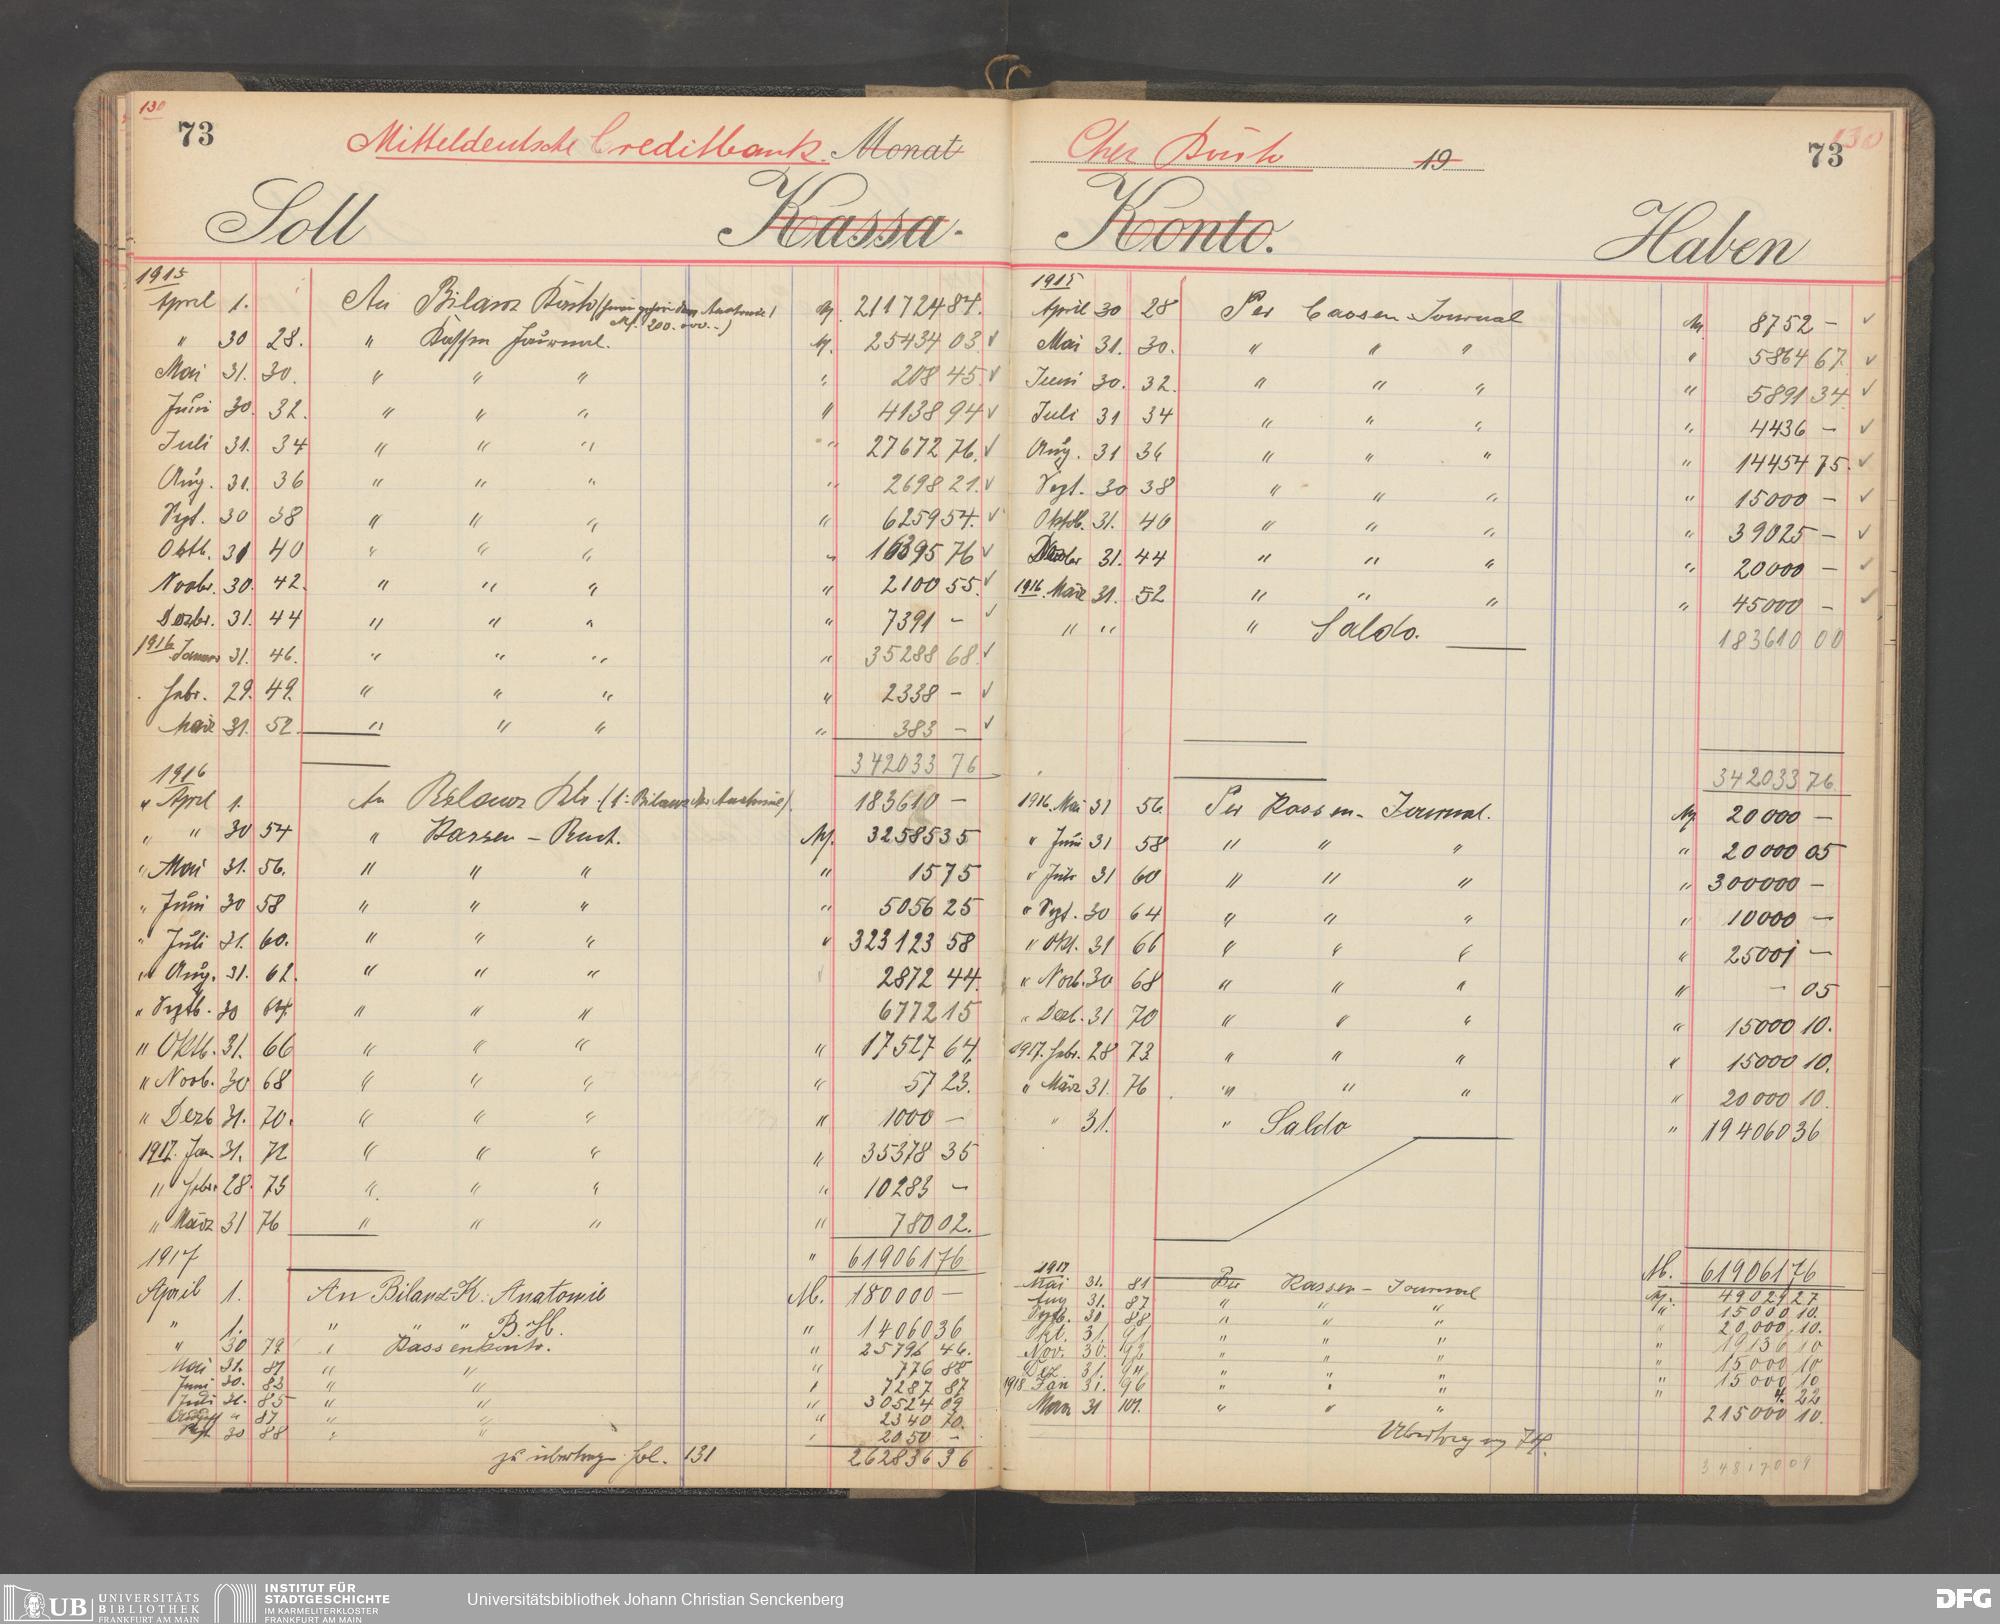 130
73
Mitteldeutsche Creditbank. Monat
Soll Kassa-
1915
April 1. An Bilanz Konto M. 211724 84.
" 30 28. " Kassen Journal. M. 25434 03 ✓
Mai 31. 30. " " " " 208 45 ✓
Juni 30. 32. " " " " 4138 94 ✓
Juli 31. 34 " " " " 27672 76. ✓
Aug. 31. 36 " " " " 2698 21. ✓
Sept. 30 38 " " " " 6259 54. ✓
Oktb. 31 40 " " " " 16395 76 ✓
Novbr. 30. 42. " " " " 2100 55. ✓
Dezbr. 31. 44 " " " " 7391 - ✓
1916 Januar 31. 46. " " " " 35288 68. ✓
Febr. 29. 49. " " " " 2338 - ✓
März 31. 52. " " " " 383 - ✓
342033 76
1916
" April 1. An Bilanz Kto. (1: Bilanz der Anatomie). 183610 -
" " 30 54 " Kassen - Buch. M. 32585 35
" Mai 31. 56. " " " " 15 75
" Juni 30 58 " " " " 5056 25
" Juli 31. 60. " " " " 323123 58
" Aug. 31. 62. " " " 2872 44.
" Septb. 30 64. " " " 6772 15
" Oktb. 31. 66 " " " " 17527 64.
" Novb. 30 68 " " " " 57 23.
" Dezb 31. 70. " " " " 1000 -
1917. Jan 31. 72 " " " " 35378 35
" Febr. 28. 73 " " " " 10283 -
" März 31 76 " " " " 780 02.
1917 " 619061 76
April 1. An Bilanz-K. Anatomie M. 180000 -
" 1. " " " B. H. " 14060 36
" 30 79 " Kassenkonto. " 25796 46.
Mai 31. 81 " " " 776 88
Juni 30. 83 " " " 7287 87
Juli 31. 85 " " " 30524 09
August " 87 " " " 2340 70.
Sept 30 88 " " " 2050 -
zu übertragen fol. 131 262836 36
Cher Konto 19
130
73
Konto. Haben
1915
April 30 28 Per Cassen-Journal M. 8752 - ✓
Mai 31. 30. " " " " 5864 67. ✓
Juni 30. 32. " " " " 5891 34. ✓
Juli 31 34 " " " " 4436 - ✓
Aug. 31 36 " " " " 14454 75. ✓
Sept. 30 38 " " " " 15000 - ✓
Oktob. 31. 40 " " " " 39025 - ✓
Dezbr 31. 44 " " " " 20000 - ✓
1916. März 31. 52 " " " " 45000 - ✓
" " " Saldo. 183610 00
342033 76
1916. Mai 31 56. Per Kassen-Journal. M. 20000 -
" Juni 31 58 " " " " 20000 05
" Juli 31 60 " " " " 300000 -
" Sept. 30 64 " " " " 10000 -
" Okt. 31 66 " " " " 25001 -
" Novb. 30 68 " " " " - 05
" Dezb. 31 70 " " " " 15000 10.
1917. Febr. 28 73 " " " " 15000 10.
" März 31. 76 " " " " 20000 10.
" 31. " Saldo " 194060 36
M. 619061 76
1917
Mai 31. 81 Per Kassen-Journal M. 49029 27
Aug 31. 87 " " " " 15000 10.
Septb. 30 88 " " " " 20,000 10.
Okt. 31. 91 " " " " 19136 10
Nov. 30. 92 " " " " 15000 10
Dez. 31. 94 " " " " 15000 10
1918 Jan 31. 96 " " " " 4. 22
März 31 101. " " " 215000 10.
Übertrag
348170 09
UB UNIVERSITÄTS
BIBLIOTHEK
FRANKFURT AM MAIN
INSTITUT FÜR
STADTGESCHICHTE
IM KARMELITERKLOSTER
FRANKFURT AM MAIN
Universitätsbibliothek Johann Christian Senckenberg
DFG